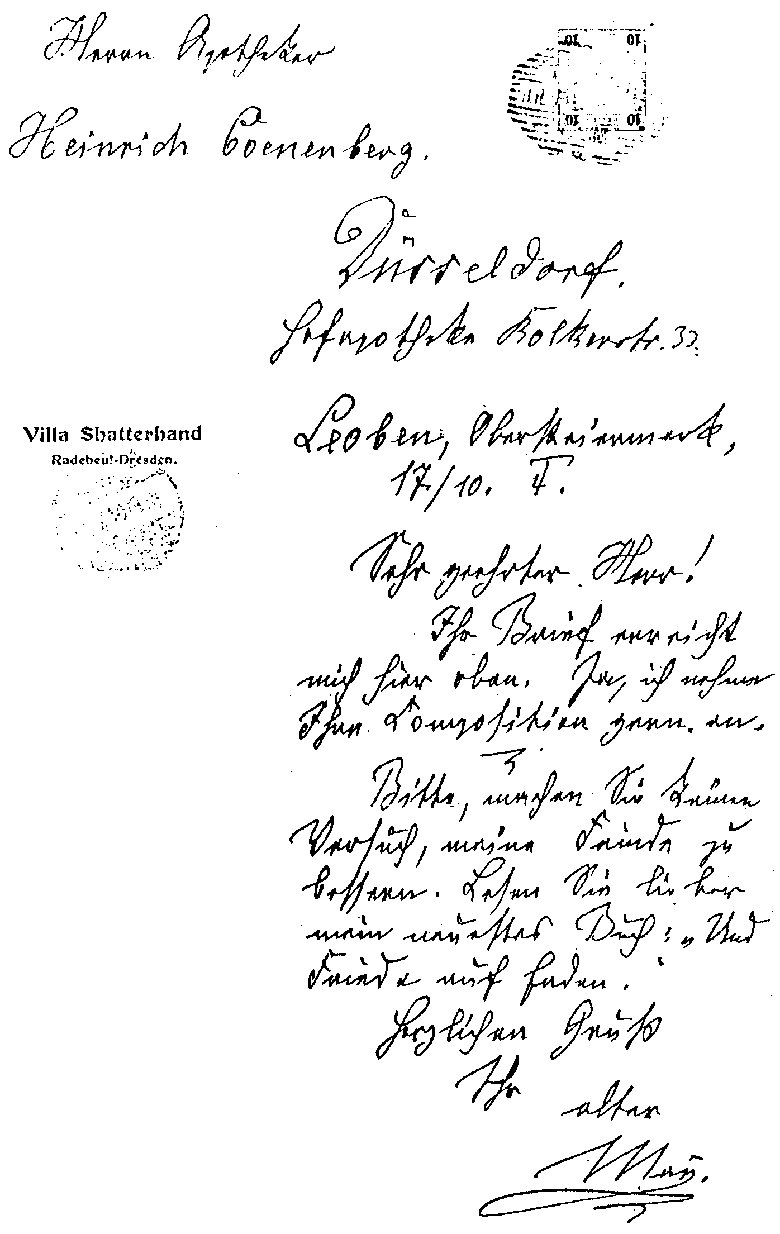 Herrn Apotheker
10 10
Heinrich Coenenberg.
10 10
Düsseldorf.
Hofapotheke Bolkerstr. 33.
Villa Shatterhand
Radebeul-Dresden.
Leoben, Obersteiermark,
17./10.
Sehr geehrter Herr!
Ihr Brief erreicht
mich hier oben. Ja, ich nehme
Ihre Composition gern an.
Bitte, machen Sie keinen
Versuch, meine Feinde zu
bessern. Lesen Sie lieber
mein neuestes Buch: „Und
Friede auf Erden."
Herzlichen Gruß
Ihr
alter
May.